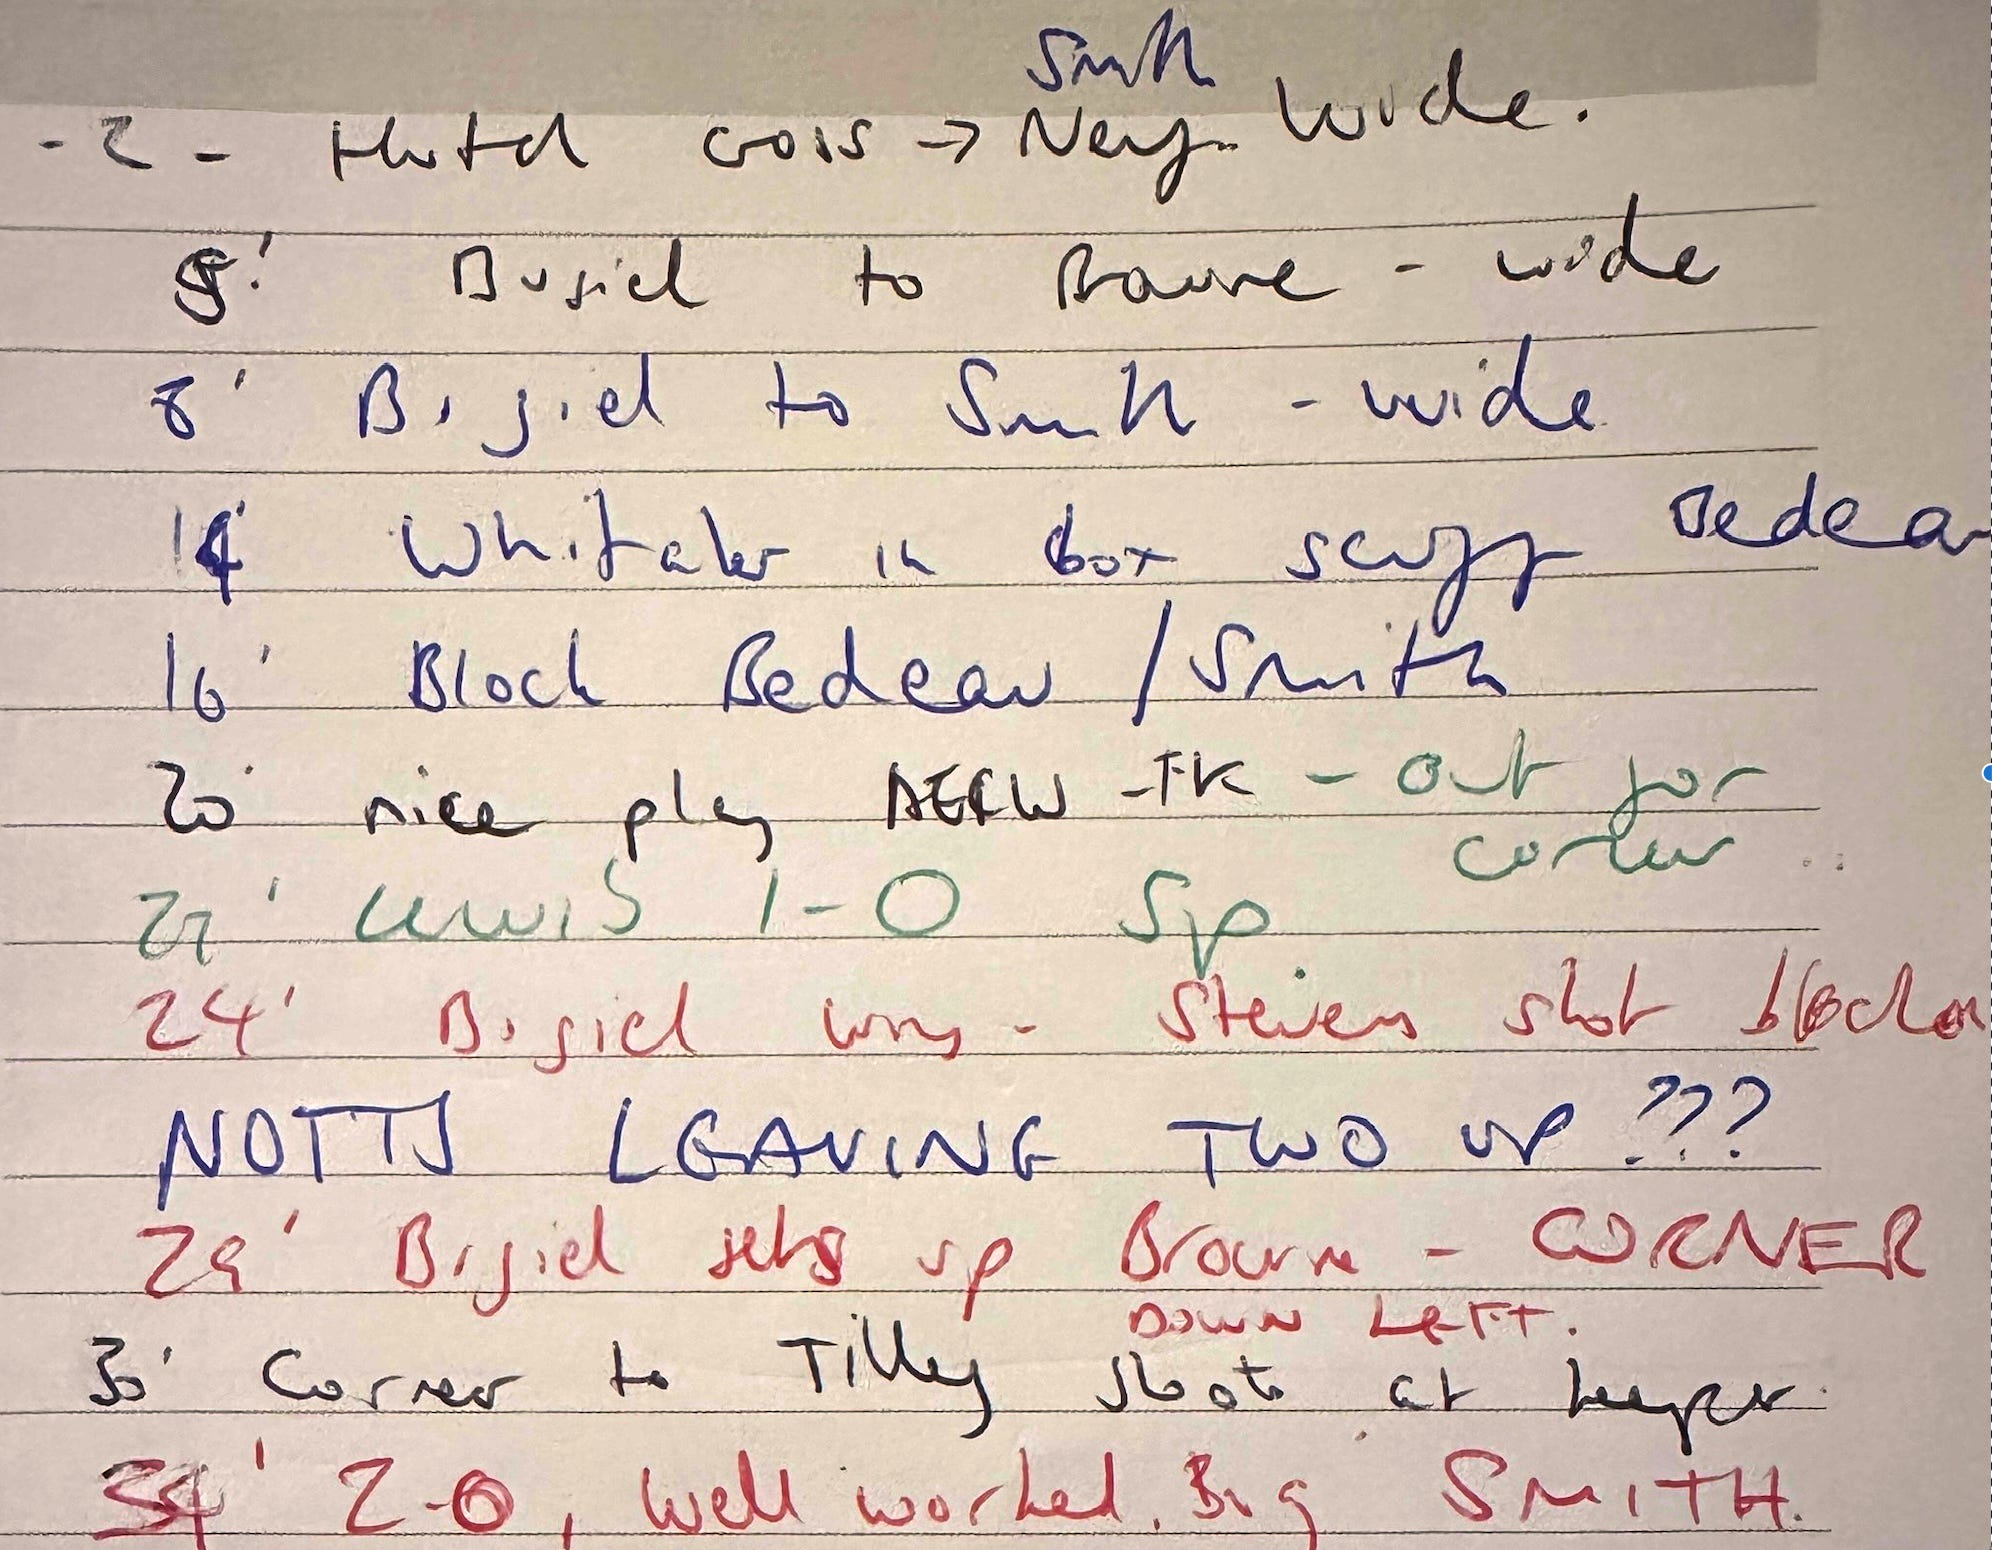 Smith
-2- Hutch cross → Wide.
5' Bigiel to Bowne - wide
8' Bigiel to Smith - wide
14' Whitaker in box scuff Bedeau
16' Block Bedeau / Smith
20' nice play - FK - out for
corner
21' Lewis 1-0 Sp
24' Bigiel wins - Stevens shot blocked
NOTTS LEAVING TWO UP ???
29' Bigiel sets up Browne - CORNER
DOWN LEFT.
30' Corner to Tilley shoots at keeper.
34' 2-0, well worked. Big SMITH.